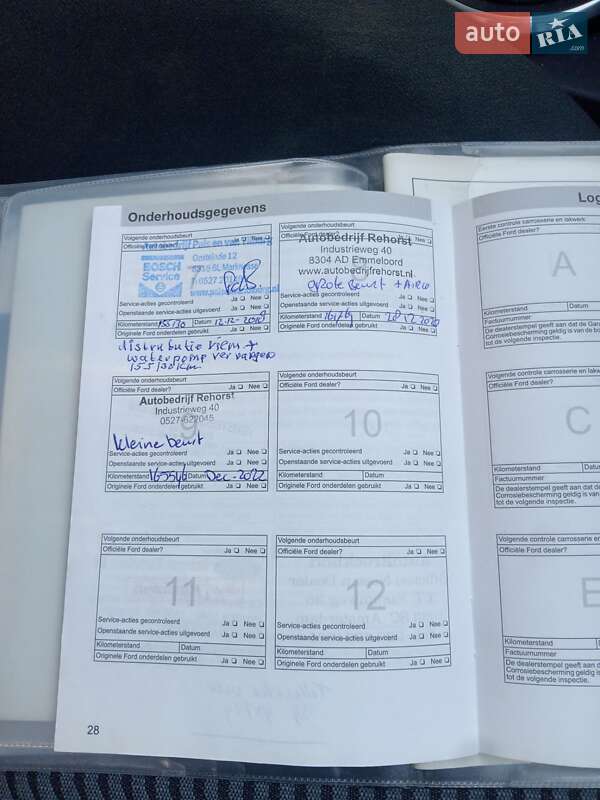 auto RIA .com
Onderhoudsgegevens
Volgende onderhoudsbeurt
Officiële Ford dealer? Ja Nee
Oosteinde 12
BOSCH
Service
Service-acties gecontroleerd Ja Nee
Openstaande service-acties uitgevoerd Ja Nee
Kilometerstand 155130 Datum 12-12-2018
Originele Ford onderdelen gebruikt Ja Nee
distributie riem +
waterpomp vervangen
155130 km
Volgende onderhoudsbeurt
Officiële Ford dealer? Nee
Autobedrijf Rehorst
Industrieweg 40
8304 AD Emmeloord
www.autobedrijfrehorst.nl
grote beurt + Airco
Service-acties gecontroleerd Ja Nee
Openstaande service-acties uitgevoerd Ja Nee
Kilometerstand Datum
Originele Ford onderdelen gebruikt Ja Nee
Volgende onderhoudsbeurt
Officiële Ford dealer? Ja Nee
Autobedrijf Rehorst
Industrieweg 40
0527-622045
9
kleine beurt
Service-acties gecontroleerd Ja Nee
Openstaande service-acties uitgevoerd Ja Nee
Kilometerstand 165546 Datum Dec-2022
Originele Ford onderdelen gebruikt Ja Nee
Volgende onderhoudsbeurt
Officiële Ford dealer? Ja Nee
10
Service-acties gecontroleerd Ja Nee
Openstaande service-acties uitgevoerd Ja Nee
Kilometerstand Datum
Originele Ford onderdelen gebruikt Ja Nee
Volgende onderhoudsbeurt
Officiële Ford dealer? Ja Nee
11
Service-acties gecontroleerd Ja Nee
Openstaande service-acties uitgevoerd Ja Nee
Kilometerstand Datum
Originele Ford onderdelen gebruikt Ja Nee
Volgende onderhoudsbeurt
Officiële Ford dealer? Ja Nee
12
Service-acties gecontroleerd Ja Nee
Openstaande service-acties uitgevoerd Ja Nee
Kilometerstand Datum
Originele Ford onderdelen gebruikt Ja Nee
28
Eerste controle carrosserie en lakwerk
Officiële Ford dealer?
A
Kilometerstand
Factuurnummer
De dealerstempel geeft aan dat de
Corrosiebescherming geldig is van
tot de volgende inspectie.
Volgende controle carrosserie en
Officiële Ford dealer?
C
Kilometerstand
Factuurnummer
De dealerstempel geeft aan dat de
Corrosiebescherming geldig is van
tot de volgende inspectie.
Volgende controle carrosserie en
Officiële Ford dealer?
E
Kilometerstand
Factuurnummer
De dealerstempel geeft aan dat de
Corrosiebescherming geldig is van
tot de volgende inspectie.